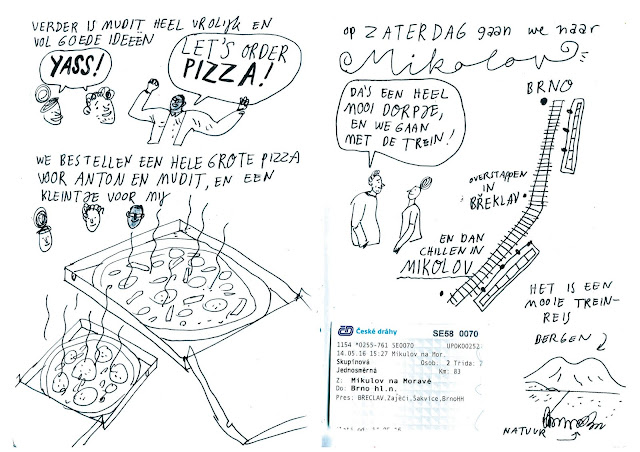 VERDER IS MUDIT HEEL VROLIJK EN
VOL GOEDE IDEEËN
YASS!
LET'S ORDER
PIZZA!
WE BESTELLEN EEN HELE GROTE PIZZA
VOOR ANTON EN MUDIT, EN EEN
KLEINTJE VOOR MIJ
OP ZATERDAG gaan we naar
Mikolov
DA'S EEN HEEL
MOOI DORPJE,
EN WE GAAN
MET DE TREIN!
BRNO
OVERSTAPPEN
IN
BŘEKLAV
EN DAN
CHILLEN IN
MIKOLOV
HET IS EEN
MOOIE TREIN-
REIS
BERGEN
NATUUR
České dráhy SE58 0070
1154 *0255-761 SE0070 UPOK00252
14.05.16 15:27 Mikulov na Mor.
Skupinová Osob.: 2 Trida: 2
Jednosměrná Km: 83
Z: Mikulov na Moravě
Do: Brno hl.n.
Přes: BRECLAV,Zaječí,Šakvice,BrnoHH